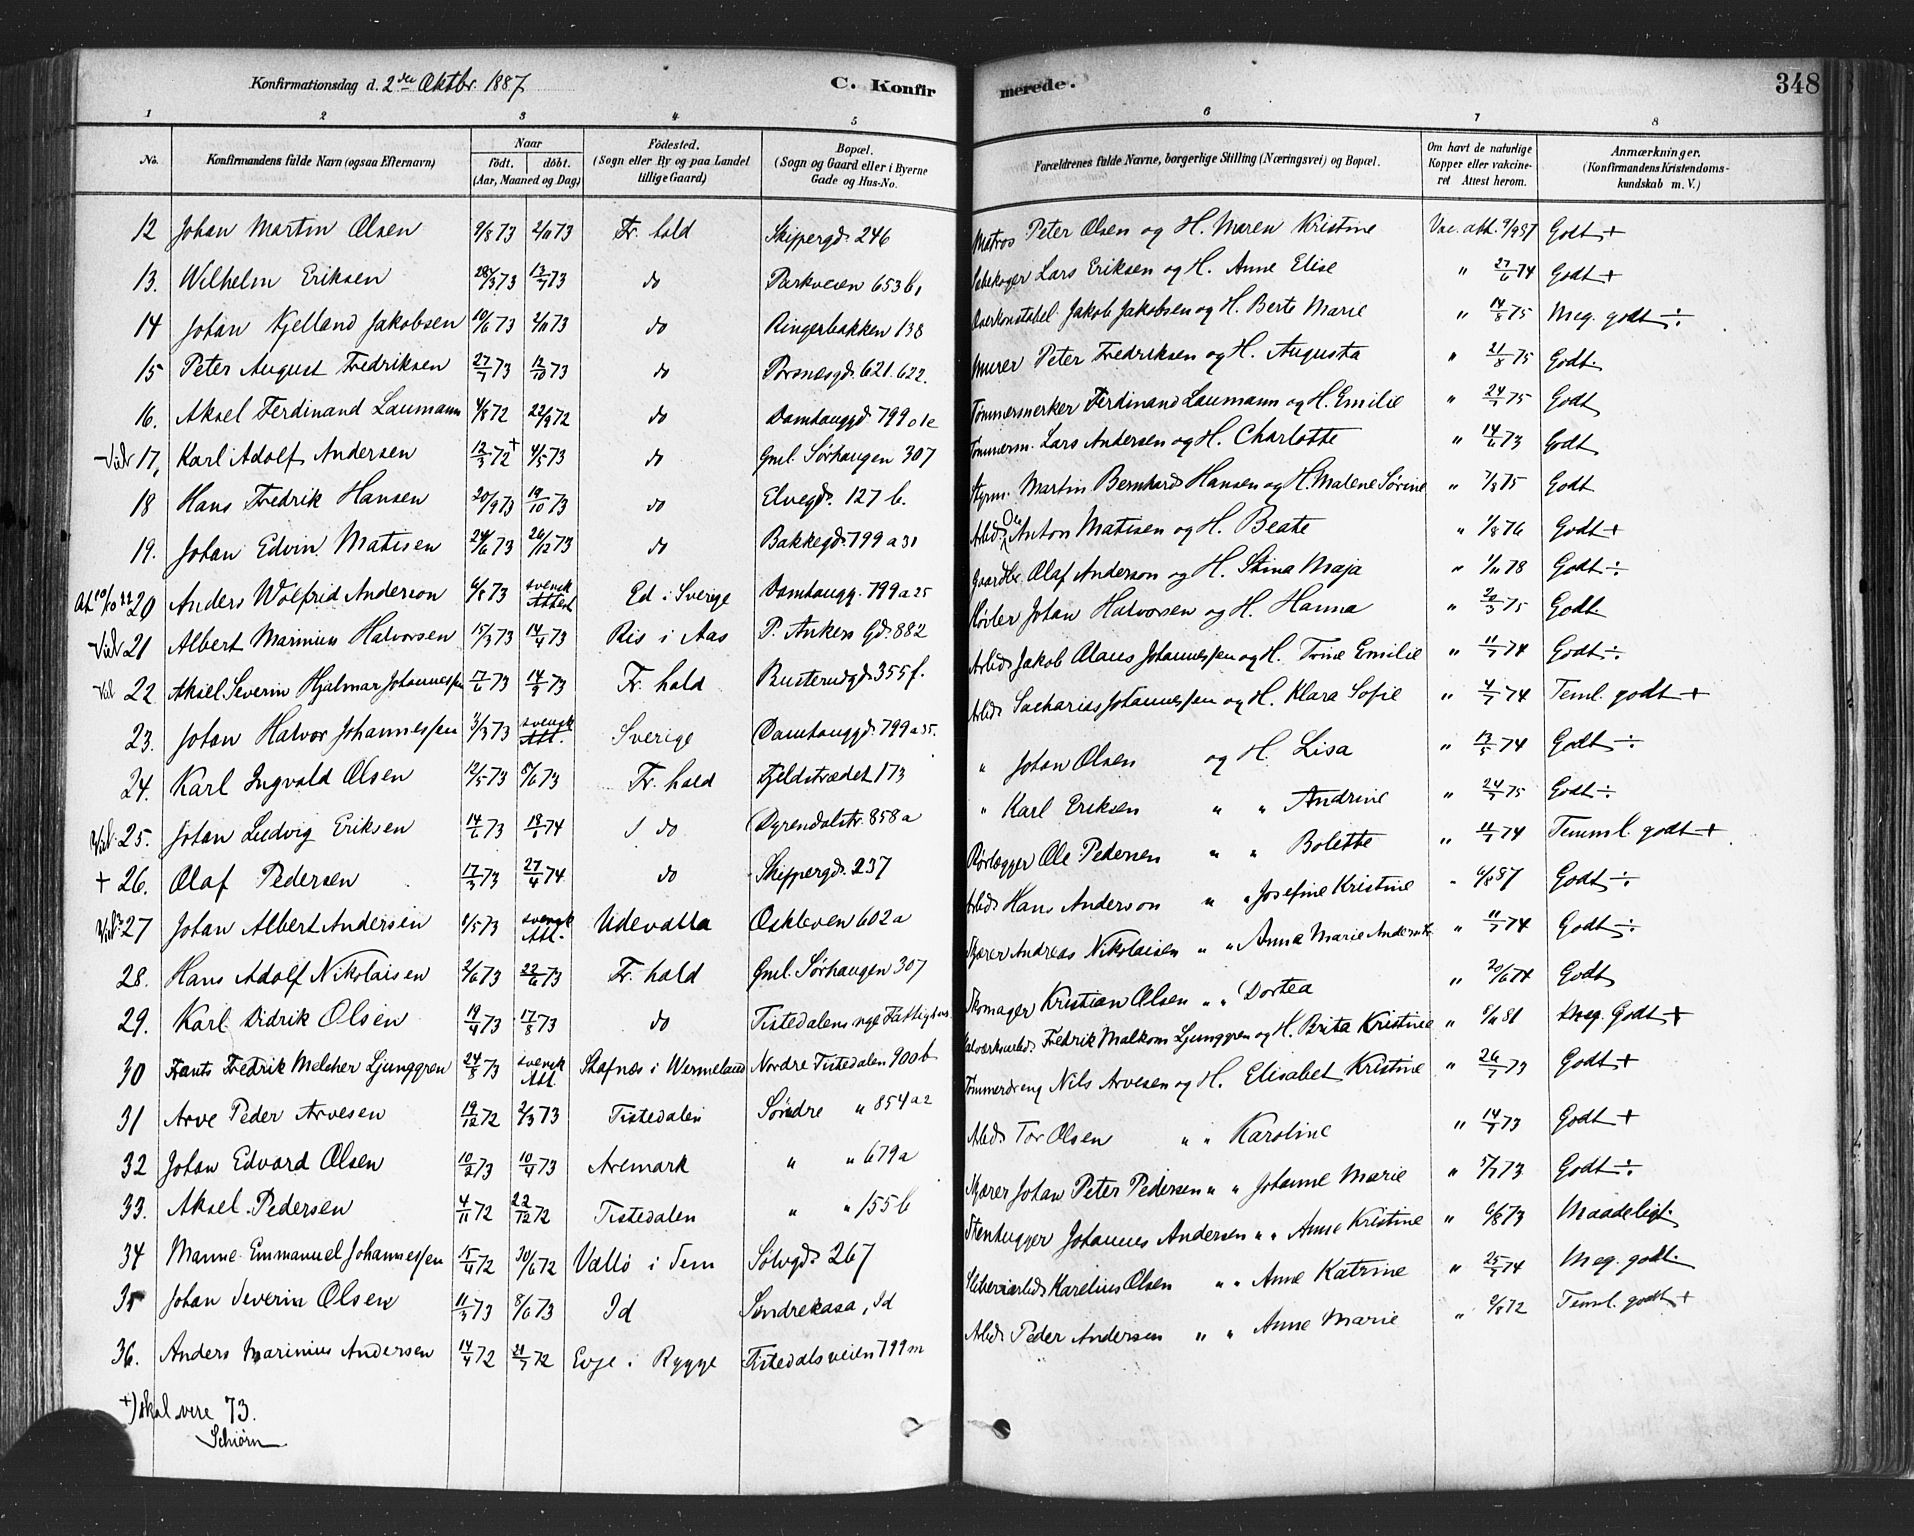 Konfirmationsdag d. 2den Oktbr. 1887 C. Konfirmerede. 348
1 2 3 4 5 6 7 8
No. Konfirmandens fulde Navn (ogsaa Efternavn) Naar født. døbt. (Aar, Maaned og Dag) Fødested. (Sogn eller By og paa Landet tillige Gaard) Bopæl. (Sogn og Gaard eller i Byerne Gade og Hus-No. Forældrenes fulde Navne, borgerlige Stilling (Næringsvei) og Bopæl. Om havt de naturlige Kopper eller vakcineret Attest herom. Anmærkninger. (Konfirmandens Kristendomskundskab m. V.)
12 Johan Martin Olsen 9/8 73 2/11 73 Fr. hald Skippergd. 246 Matros Peter Olsen og H. Maren Kristine Vac. att. 9/9 87 Godt +
13. Wilhelm Eriksen 28/3 73 13/7 73 do Parkveien 653 b, Lars Eriksen og H. Anne Elise " 27/6 74 Godt +
14 Johan Kjelland Jakobsen 10/6 73 2/11 73 do Ringerbakken 138 Overkonstabel Jakob Jakobsen og H. Berte Marie " 14/8 75 Meg. godt ÷
15 Peter August Fredriksen 27/7 73 12/10 73 do Porsnesgd. 621.622. Murer Peter Fredriksen og H. Augusta " 21/8 75 Godt.
16. Aksel Ferdinand Laumann 4/8 72 22/9 72 do Damhauggd. 799 Tømmermerker Ferdinand Laumann og H. Emilie " 24/7 75 Godt
17, Karl Adolf Andersen 12/3 72 + 4/5 73 do Gml. Sørhaugen 307 Tømmerm. Lars Andersen og H. Charlotte " 14/6 73 Godt
18 Hans Fredrik Hansen 20/9 73 19/10 73 do Elvegd. 127 b. Styrm. Martin Bernhard Hansen og H. Malene Sørine " 7/8 75 Godt
19. Johan Edvin Matisen 24/6 73 26/12 73 do Bakkegd. 799 a 31 Arbd. Ole Anton Matisen og H. Beate " 1/8 76 Godt +
20 Anders Wolfrid Anderson 6/8 73 svensk Attest Ed i Sverige Damhaugg. 799 a 25 Olaf Anderson og H. Stina Maja " 1/11 78 Godt ÷
21 Albert Marinius Halvorsen 15/3 73 14/4 73 Ris i Aas P. Ankers Gd. 882 Høvler Johan Halvorsen og H. Hanna " 20/3 75 Godt.
22 Aksel Severin Hjalmar Johannessen 17/6 73 14/9 73 Fr. hald Busterudgd. 355 f. Arbd. Jakob Olaus Johannessen og H. Trine Emilie " 11/7 74 Godt ÷
23. Johan Halvor Johannessen 3/3 73 svensk Att. Sverige Damhauggd. 799 a 35. Arbd. Sacharias Johannessen og H. Klara Sofie " 4/7 74 Teml. godt +
24. Karl Ingvald Olsen 12/5 73 8/6 73 Fr. hald Fjeldstrædet 173 " Johan Olsen og H. Lisa " 13/5 74 Godt ÷
25. Johan Ludvig Eriksen 14/6 73 18/1 74 do Dyrendalstr. 858 a " Karl Eriksen " " Andrine " 24/7 75 Godt ÷
+ 26. Olaf Pedersen 17/3 73 27/4 74 do Skippergd. 237 Rørlægger Ole Pedersen " " Bolette " 11/7 74 Temml. godt +
27 Johan Albert Andersen 8/5 73 svensk Att. Udevalla Oskleven 602 a Arbd. Hans Anderson " " Josefine Kristine " 6/8 87 Godt ÷
28. Hans Adolf Nikolaisen 2/6 73 22/6 73 Fr. hald Gml. Sørhaugen 307 Skjærer Andreas Nikolaisen " " Anna Marie Andersdtr " 11/7 74 Godt ÷
29. Karl Didrik Olsen 19/4 73 17/8 73 do Tistedalens nye Fattighus Skomager Kristian Olsen " " Dortea " 20/6 74 Godt
30 Frants Fredrik Melcher Ljunggren 24/8 73 svensk Att. Stafnæs i Wermeland Nordre Tistedalen 900 b Fredrik Malkom Ljunggren og H. Brita Kristine " 8/11 81 Meg. Godt +
31 Arve Peder Arvesen 19/12 72 2/3 73 Tistedalen Søndre " 854 a 2 Tømmerdreng Nils Arvesen og H. Elisabet Kristine " 26/7 73 Godt +
32 Johan Edvard Olsen 10/2 73 10/4 73 Aremark " " 679 a Arbd. Tor Olsen " " Karoline " 14/7 73 Godt +
33. Aksel Pedersen 4/11 72 22/12 72 Tistedalen " " 155 b Skjærer Johan Peter Pedersen " " Johanne Marie " 5/7 73 Godt ÷
34 Manne Emmanuel Johannessen 15/4 72 30/6 72 Vallø i Sem Sølvgd. 267 Stenhugger Johannes Andersen " " Anne Kristine " 6/8 73 Maadeligt
35 Johan Severin Olsen 11/3 73 8/6 73 Id Søndrekasa, Id Sliberiarbd. Karelius Olsen " " Anne Katrine " 25/7 74 Meg. godt.
36. Anders Marinius Andersen 14/4 72 21/7 72 Evje i Rygge Tistedalsveien 799 m Arbd. Peder Andersen " " Anne Marie " 9/8 72 Teml. godt +
+) skal være 73.
Schiørn